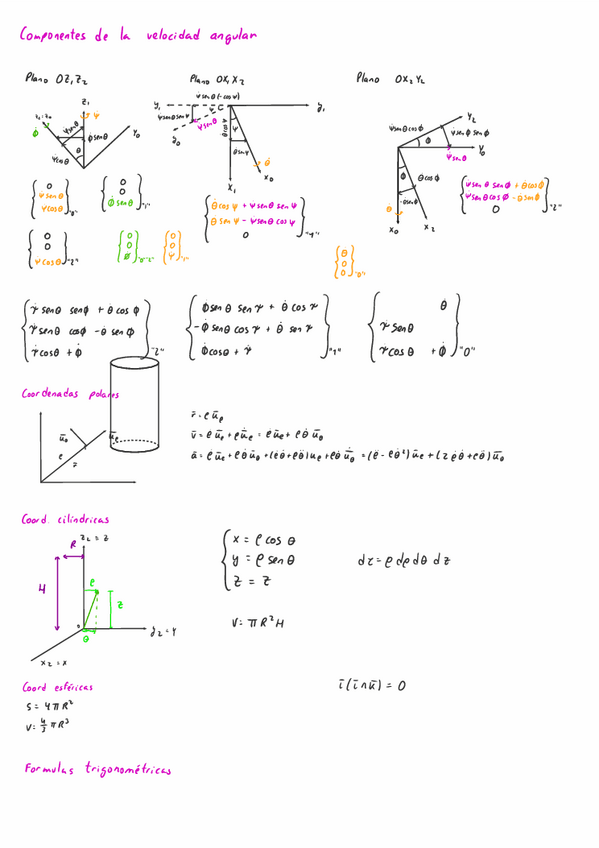 Componentes de la velocidad angular
Plano OZ₁Z₂
Plano OX₁X₂
Plano OX₂Y₂
Z₁
ψ̇
φ̇
Y₀
ψ̇ senθ
φ̇ senθ
ψ̇ cosθ
θ
ψ̇ senθ(-cosψ)
Y₁
y₁
ψ̇ senθ senψ
ψ̇ senθ
y₀
ψ
θ̇ cosψ
θ̇ senψ
θ̇
X₁
X₀
Y₂
ψ̇ senθ cosφ
ψ̇ senθ senφ
φ
Y₀
ψ̇ senθ
φ
θ̇ cosφ
-θ̇ senφ
θ̇
X₀
X₂
{0 ψ̇ senθ ψ̇ cosθ}"0"
{0 0 φ̇ senθ}"1"
{θ̇ cosψ + ψ̇ senθ senψ
θ̇ senψ - ψ̇ senθ cosψ
0}"1"
{ψ̇ senθ senφ + θ̇ cosφ
ψ̇ senθ cosφ - θ̇ senφ
0}"2"
{0 0 ψ̇ cosθ}"2"
{0 0 φ̇}"0""2"
{0 0 ψ̇}"1"
{θ̇ 0 0}"0"
{ψ̇ senθ senφ + θ̇ cosφ
ψ̇ senθ cosφ - θ̇ senφ
ψ̇ cosθ + φ̇}"2"
{φ̇ senθ senψ + θ̇ cosψ
-φ̇ senθ cosψ + θ̇ senψ
φ̇ cosθ + ψ̇}"1"
{θ̇
ψ̇ senθ
ψ̇ cosθ + φ̇}"0"
Coordenadas polares
ū_θ
ū_ρ
ρ
r̄
r̄ = ρ ū_ρ
v̄ = ρ̇ ū_ρ + ρ u̇_ρ = ρ̇ ū_ρ + ρ θ̇ ū_θ
ā = ρ̈ ū_ρ + ρ̇ θ̇ ū_θ + (ρ̇ θ̇ + ρ θ̈) u_θ + ρ θ̇ u̇_θ = (ρ̈ - ρ θ̇²) ū_ρ + (2 ρ̇ θ̇ + ρ θ̈) ū_θ
Coord. cilíndricas
Z₂ = Z
R
H
ρ
Z
θ
o
y₂ = Y
x₂ = x
x = ρ cos θ
y = ρ sen θ
z = z
dτ = ρ dρ dθ dz
V = πR²H
Coord esféricas
S = 4πR²
V = 4/3 πR³
ī(ī∧ū) = 0
Formulas trigonométricas